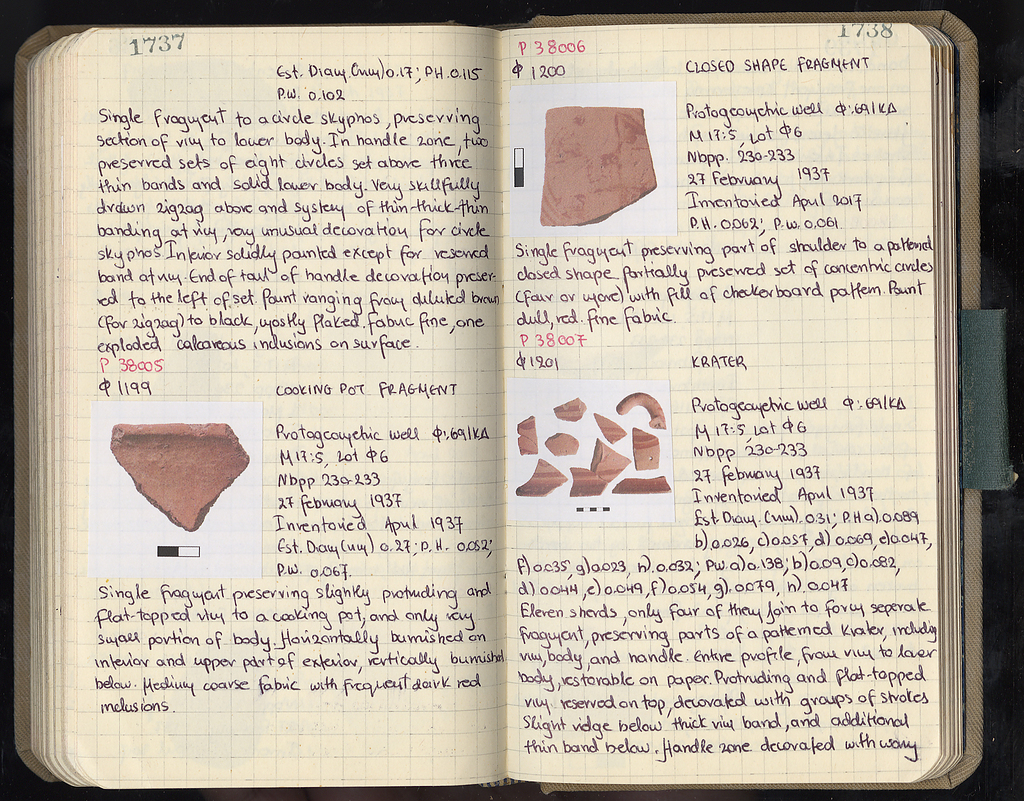 1737
Est. Diam. (rim) 0.17; P.H. 0.115
P.W. 0.102
Single fragment to a circle skyphos, preserving
section of rim to lower body. In handle zone, two
preserved sets of eight circles set above three
thin bands and solid lower body. Very skillfully
drawn zigzag above and system of thin-thick-thin
banding at rim, very unusual decoration for circle
skyphos Interior solidly painted except for reserved
band at rim. End of tail of handle decoration preser-
ed to the left of set. Paint ranging from diluted brown
(for zigzag) to black, mostly flaked. Fabric fine, one
exploded calcareous inclusions on surface.
P 38005
Φ 1199 COOKING POT FRAGMENT
Protogeometric well Φ:69/ΚΔ
M 17:5, Lot Φ6
Nbpp 230-233
27 February 1937
Inventoried April 1937
Est. Diam (rim) 0.27; P.H. 0.052;
P.W. 0.067.
Single fragment preserving slightly protruding and
flat-topped rim to a cooking pot, and only very
small portion of body. Horizontally burnished on
interior and upper part of exterior, vertically burnished
below. Medium coarse fabric with frequent dark red
inclusions.
1738
P 38006
Φ 1200 CLOSED SHAPE FRAGMENT
Protogeometric well Φ:69/ΚΔ
M 17:5, Lot Φ6
Nbpp. 230-233
27 February 1937
Inventoried April 2017
P.H. 0.062; P.W. 0.061.
Single fragment preserving part of shoulder to a patterned
closed shape. Partially preserved set of concentric circles
(four or more) with fill of checkerboard pattern. Paint
dull, red. Fine fabric.
P 38007
Φ 1201 KRATER
Protogeometric well Φ:69/ΚΔ
M 17:5, Lot Φ6
Nbpp 230-233
27 February 1937
Inventoried April 1937
Est. Diam. (rim). 0.31; P.H a) 0.089
b) 0.026, c) 0.057, d) 0.069, e) 0.047,
f) 0.035, g) 0.023, h) 0.032; P.W. a) 0.138; b) 0.09, c) 0.082,
d) 0.044, e) 0.049, f) 0.054, g) 0.079, h) 0.047
Eleven sherds, only four of them join to form seperate
fragment, preserving parts of a patterned krater, including
rim, body, and handle. Entire profile, from rim to lower
body, restorable on paper. Protruding and flat-topped
rim reserved on top, decorated with groups of strokes
Slight ridge below thick rim band, and additional
thin band below. Handle zone decorated with wavy